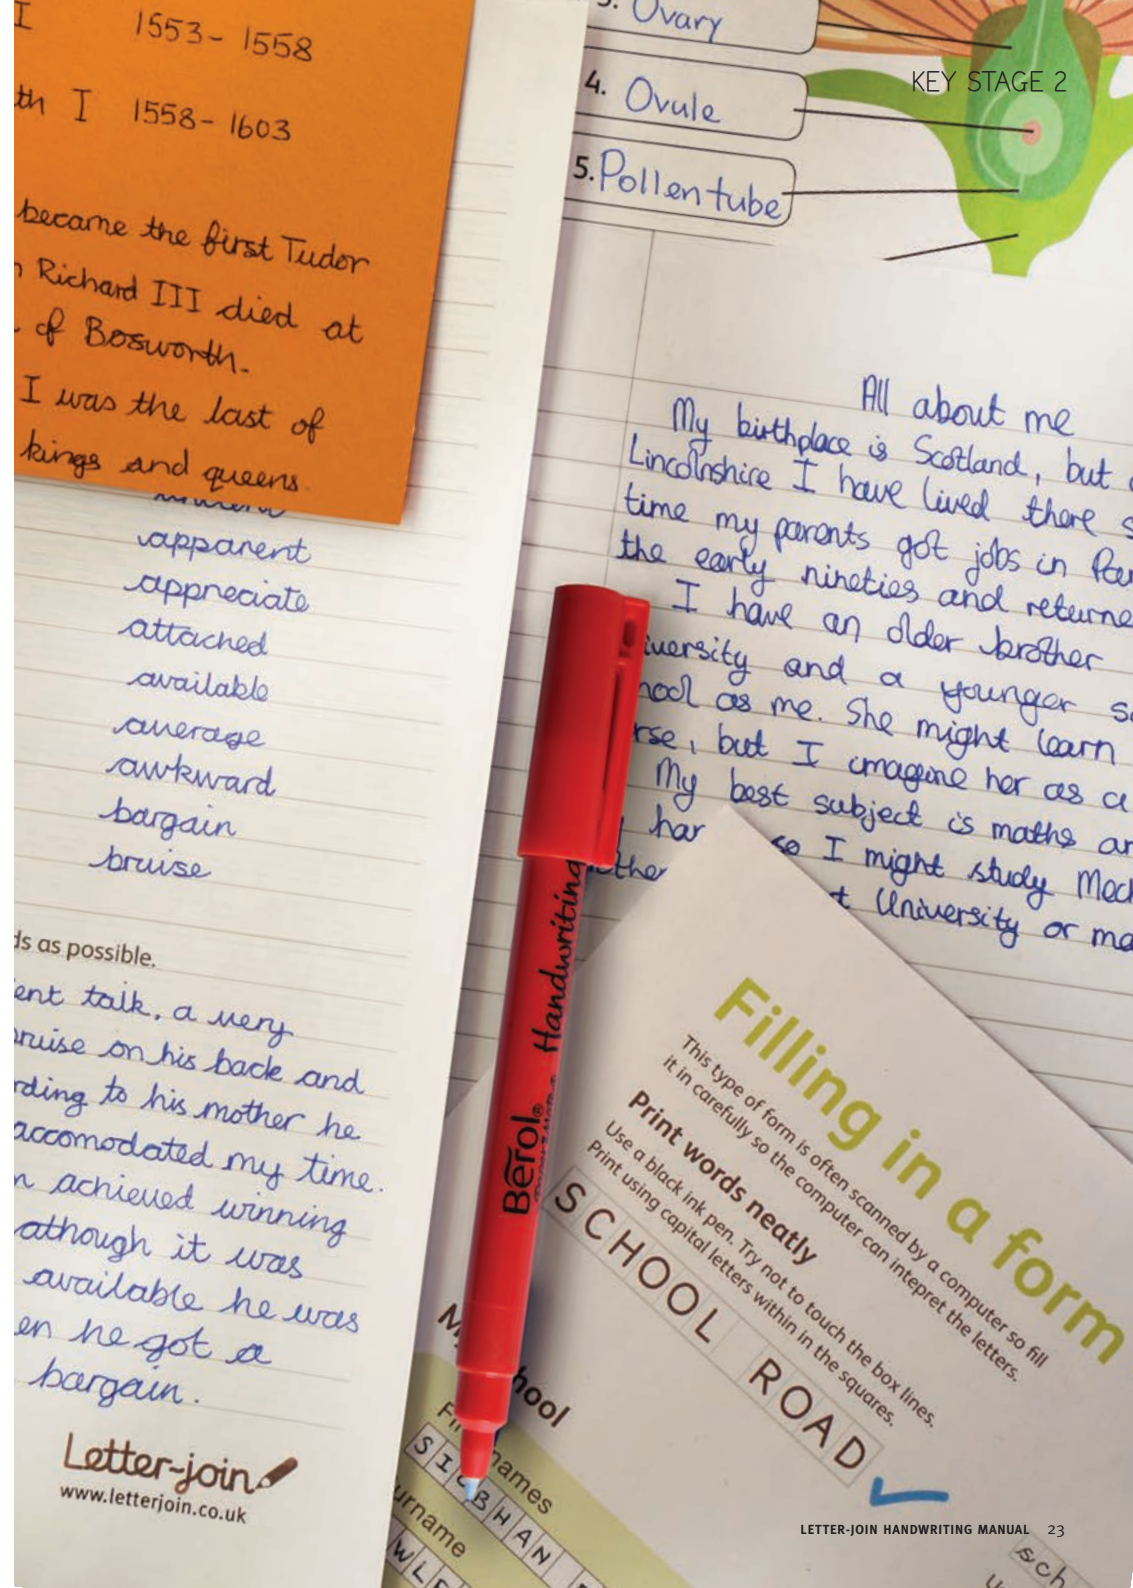 I 1553- 1558
th I 1558- 1603
became the first Tudor
Richard III died at
of Bosworth.
I was the last of
kings and queens.
apparent
appreciate
attached
available
average
awkward
bargain
bruise
ds as possible.
ent talk, a very
ruise on his back and
rding to his mother he
accomodated my time.
n achieved winning
athough it was
available he was
en he got a
bargain.
Letter-join
www.letterjoin.co.uk
3. Ovary
4. Ovule
5. Pollen tube
KEY STAGE 2
All about me
My birthplace is Scotland, but
Lincolnshire I have lived there s
time my parents got jobs in
the early nineties and returne
I have an older brother
iversity and a younger s
hool as me. She might learn
rse, but I imagine her as a
My best subject is maths an
har so I might study Mech
other t University or ma
Berol Handwriting
Filling in a form
This type of form is often scanned by a computer so fill
it in carefully so the computer can intepret the letters.
Print words neatly
Use a black ink pen. Try not to touch the box lines.
Print using capital letters within in the squares.
SCHOOL ROAD
M hool
Fi names
SIOBHAN
urname
WLE
sch
LETTER-JOIN HANDWRITING MANUAL 23